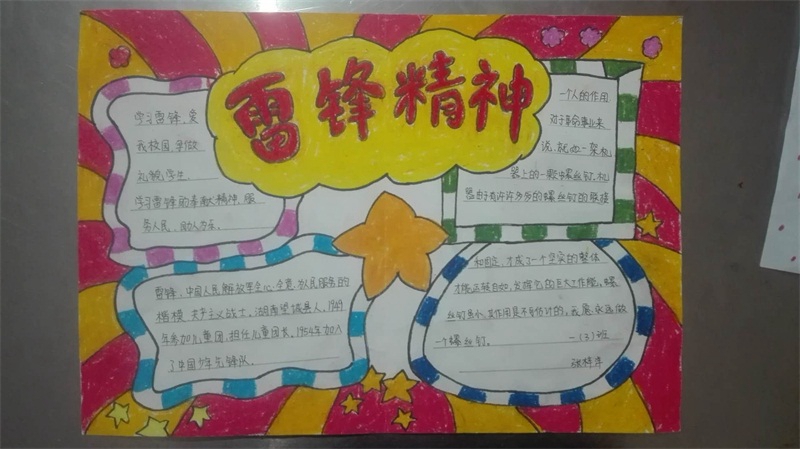 雷锋精神
学习雷锋,爱
我校园,争做
礼貌学生
学习雷锋的奉献精神,服
务人民,助人为乐。
一个人的作用
对于革命事业来
说,就如一架机
器上的一颗螺丝钉,机
器由于有许许多多的螺丝钉的联接
雷锋,中国人民解放军全心全意为人民服务的
楷模,共产主义战士,湖南望城县人,1949
年参加儿童团,担任儿童团长。1954年加入
了中国少年先锋队。
和固定,才成了一个坚实的整体
才能运转自如,发挥它的巨大工作能,螺
丝钉虽小,其作用是不可估计的,我愿永远做
一个螺丝钉。 一(3)班